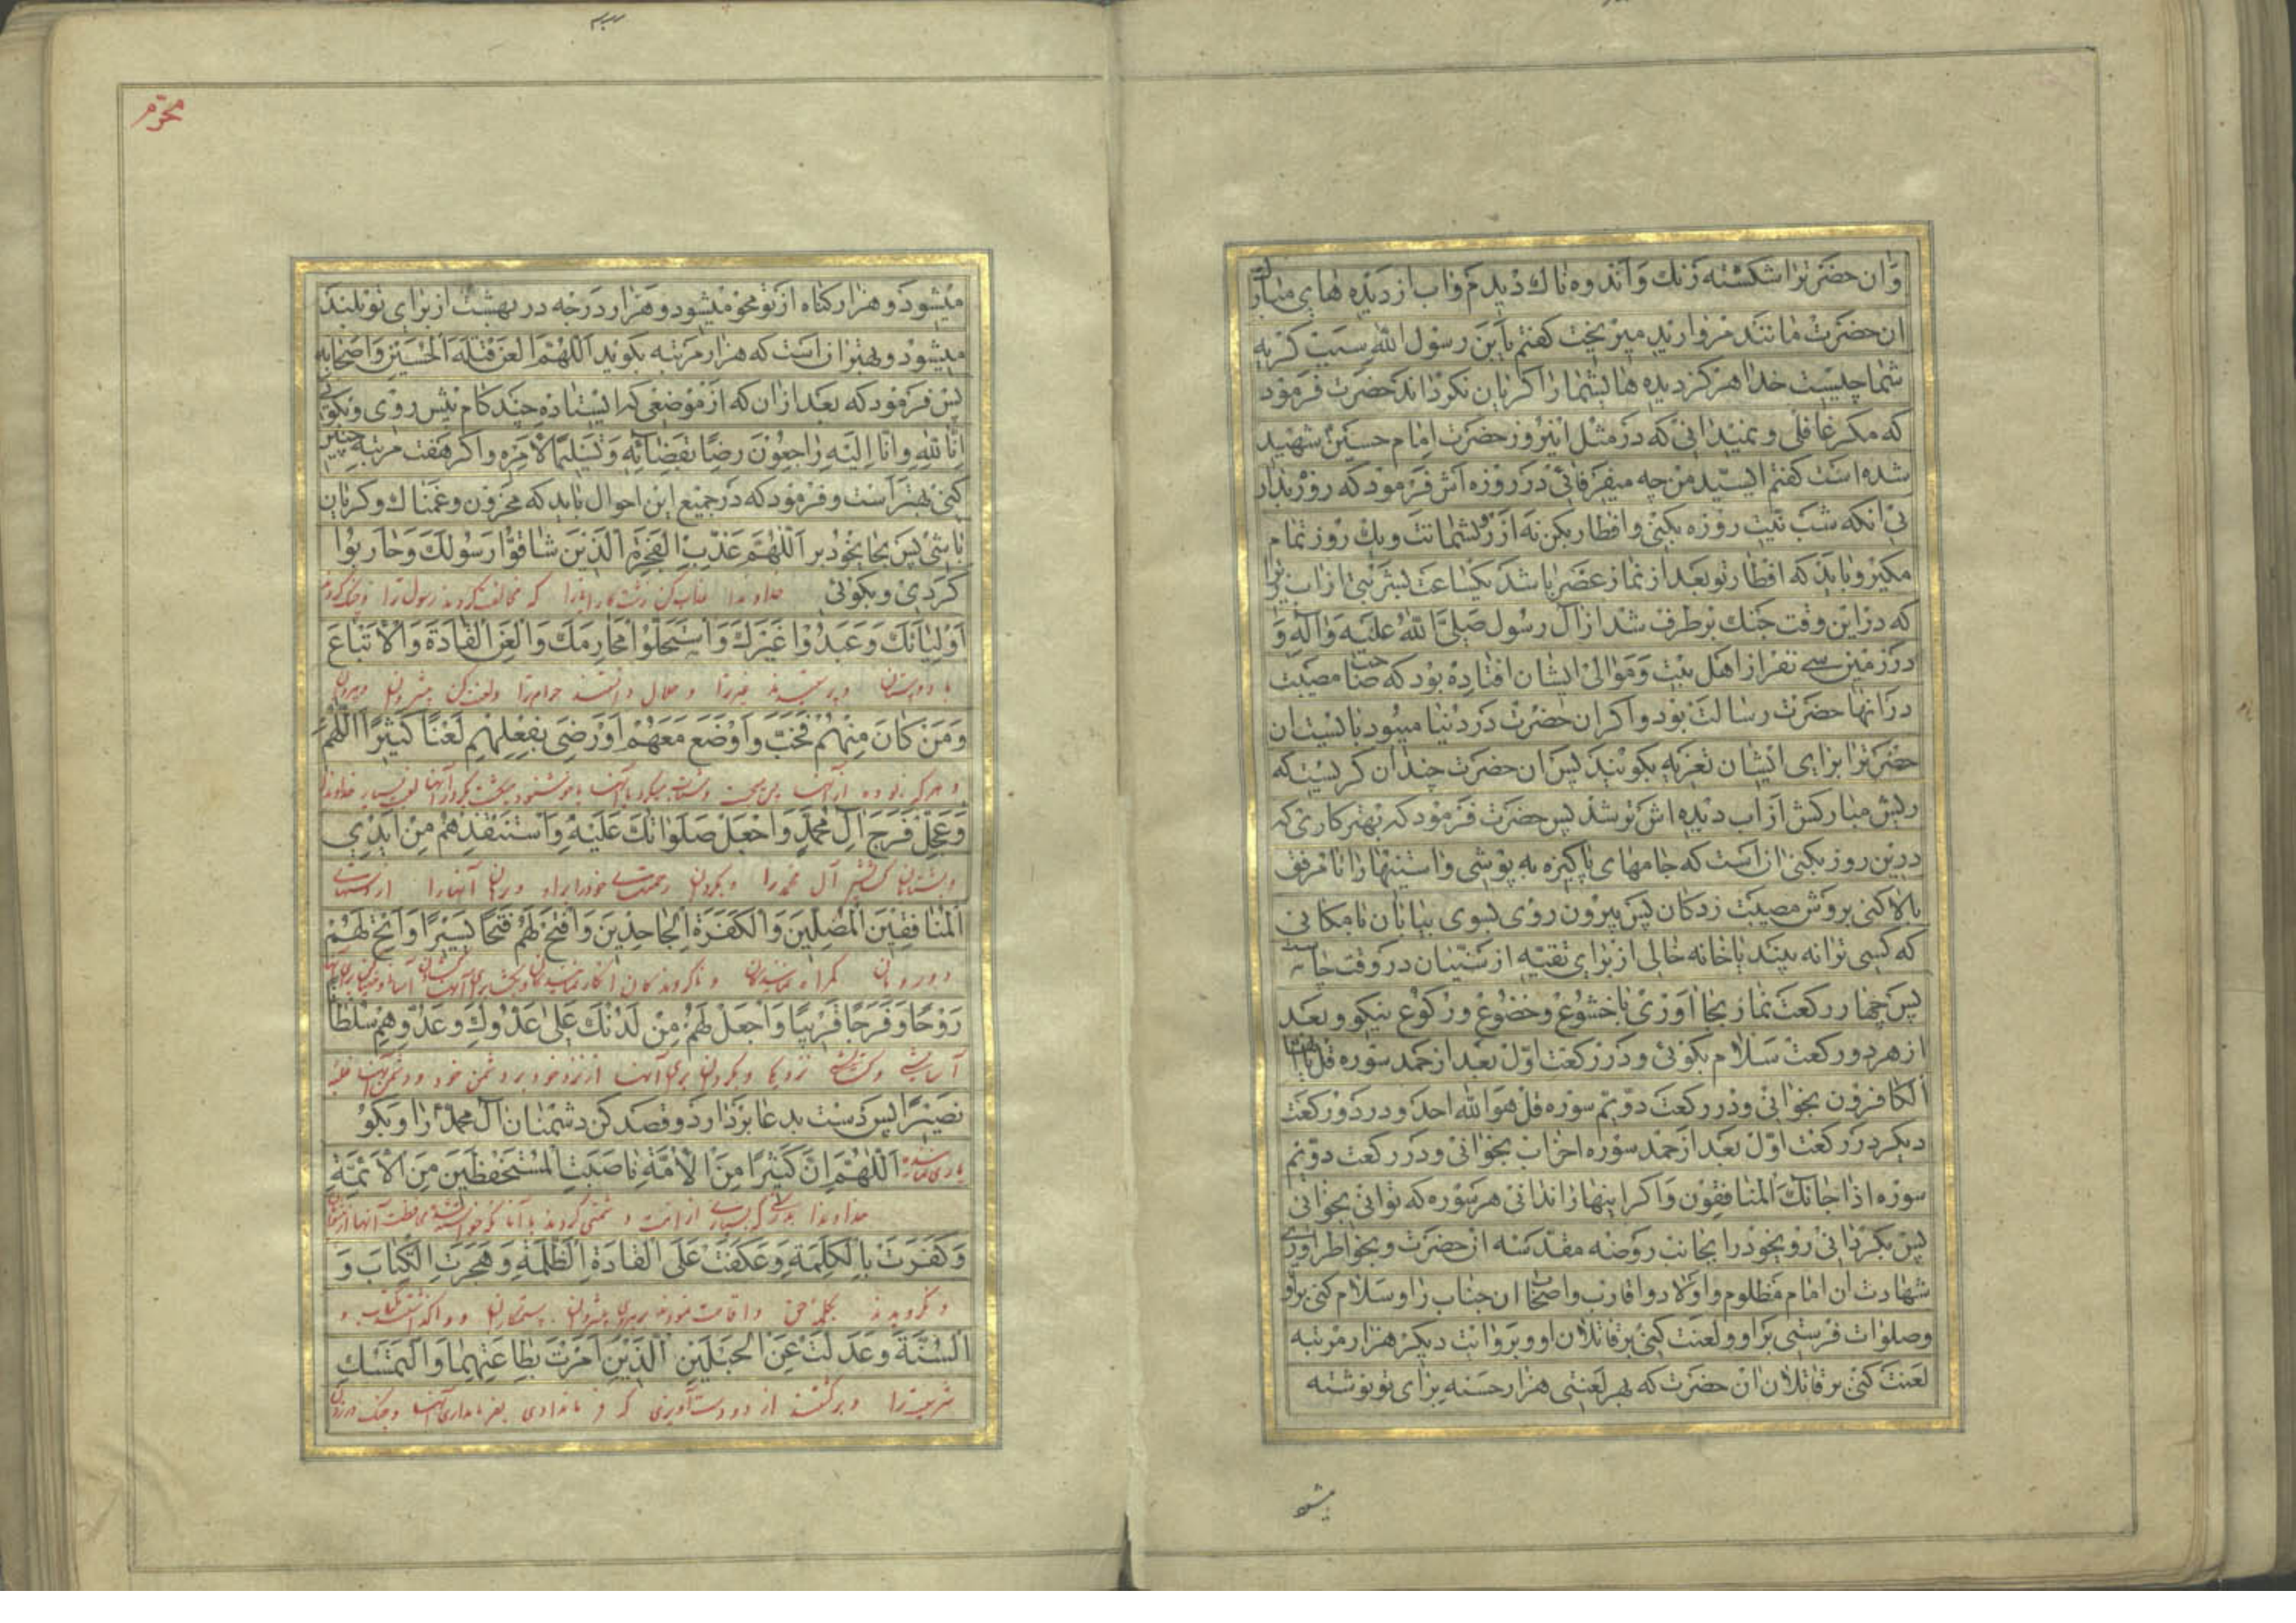 وان حضرترا شکسته رنك و اندوه ناك دیدم و اب از دیده های مبارك
ان حضرت مانند مروارید میریخت کفتم یابن رسول الله سبب کریه
شما چیست خدا هرکز دیده های شما را کریان نکرداند حضرت فرمود
که مکر غافلی و نمیدانی که در مثل اینروز حضرت امام حسین شهید
شده است کفتم ای سید من چه میفرمائی در روزه اش فرمود که روزه بدار
بی انکه شب نیت روزه بکنی و افطار بکن نه از روی شماتت و یك روز تمام
مکیر و باید که افطار تو بعد از نماز عصر باشد بیکساعت بشربتی از اب زیرا
که در این وقت جنك برطرف شد از ال رسول صلی الله علیه واله و
در زمین سی نفر از اهل بیت و موالی ایشان افتاده بود که مصیبت
در انها حضرت رسالت بود واکر ان حضرت در دنیا میبود بایست ان
حضرترا برای ایشان تعزیه بکویند پس ان حضرت چندان کریست که
ریش مبارکش از اب دیده اش تر شد پس حضرت فرمود که بهتر کاری که
درین روز بکنی ان است که جامهای پاکیزه به پوشی و استینها را تا مرفق
بالا کنی بروش مصیبت زدکان پس بیرون روی بسوی بیابان یا مکانی
که کسی ترا نه بیند یا خانه خالی از برای تقیه از سنیان در وقت چاشت
پس چهار رکعت نماز بجا اوری با خشوع و خضوع و رکوع نیکو و بعد
از هر دو رکعت سلام بکوئی و در رکعت اول بعد از حمد سوره قل یا ایها
الکافرون بخوانی و در رکعت دویم سوره قل هو الله احد و در دو رکعت
دیکر در رکعت اول بعد از حمد سوره احزاب بخوانی و در رکعت دویم
سوره اذا جائك المنافقون واکر اینها را ندانی هر سوره که توانی بخوانی
پس بکردانی رو بخود را بجانب روضه مقدسه ان حضرت و بخواطر اوری
شهادت ان امام مظلوم و اولاد و اقارب و اصحاب ان جناب را و سلام کنی بر او
و صلوات فرستی بر او و لعنت کنی بر قاتلان او و بروایت دیکر هزار مرتبه
لعنت کنی بر قاتلان ان حضرت که بهر لعنتی هزار حسنه برای تو نوشته
میشو
محرّم
میشود و هزار کناه از تو محو میشود و هزار درجه در بهشت از برای تو بلند
میشود و بهتر از است که هزار مرتبه بکوید اللهم العن قتلة الحسین و اصحابه
پس فرمود که بعد ازان که از موضعی که ایستاده چند کام پیش روی و بکوئی
انا لله وانا الیه راجعون رضا بقضائه وتسلیما لامره واکر هفت مرتبه چنین
کنی بهتر است و فرمود که در جمیع این احوال باید که محزون و غمناك و کریان
باشی پس بجا بخود بر اللهم عذب الفجرة الذین شاقوا رسولك وحاربوا
کردی و بکوئی خداوندا عذاب کن زشت کارانرا که مخالفت کردند رسول ترا و جنك کردند
اولیائك وعبدوا غیرك واستحلوا محارمك والعن القادة والاتباع
با دوستان و پرستیدند غیر ترا و حلال دانستند حرام ترا و لعن کن پیشروان و پیروان
ومن کان منهم فخب واوضع معهم او رضی بفعلهم لعنا کثیرا اللهم
وعجل فرج ال محمد واجعل صلواتك علیه واستنقذهم من ایدی
و بشتابان کشایش آل محمد را و بکردان رحمتهای خود را بر او و برهان آنها را از دستهای
المنافقین المضلین والکفرة الجاحدین وافتح لهم فتحا یسیرا واتح لهم
روحا وفرجا قریبا واجعل لهم من لدنك علی عدوك وعدوهم سلطانا
آسایشی و کشایشی نزدیك و بکردان برای آنها از نزد خود بر دشمن خود و دشمن آنها غلبه
نصیرا پس دست بدعا بردار و قصد کن دشمنان ال محمد را و بکو
یاری کننده اللهم ان کثیرا من الامة ناصبت المستحفظین من الائمة
خداوندا بدرستی که بسیاری از امت دشمنی کردند با آنان که محافظت آنها از
وکفرت بالکلمة وعکفت علی القادة الظلمة وهجرت الکتاب و
و نکرویدند بکلمه حق و اقامت نمودند بر پیشروان ستمکاران و واکذاشتند کتاب و
السنة وعدلت عن الحبلین الذین امرت بطاعتهما والتمسك
شریعت را و برکشتند از دو دست آویزی که فرمان دادی بفرمانبرداری آنها و چنك در زدن